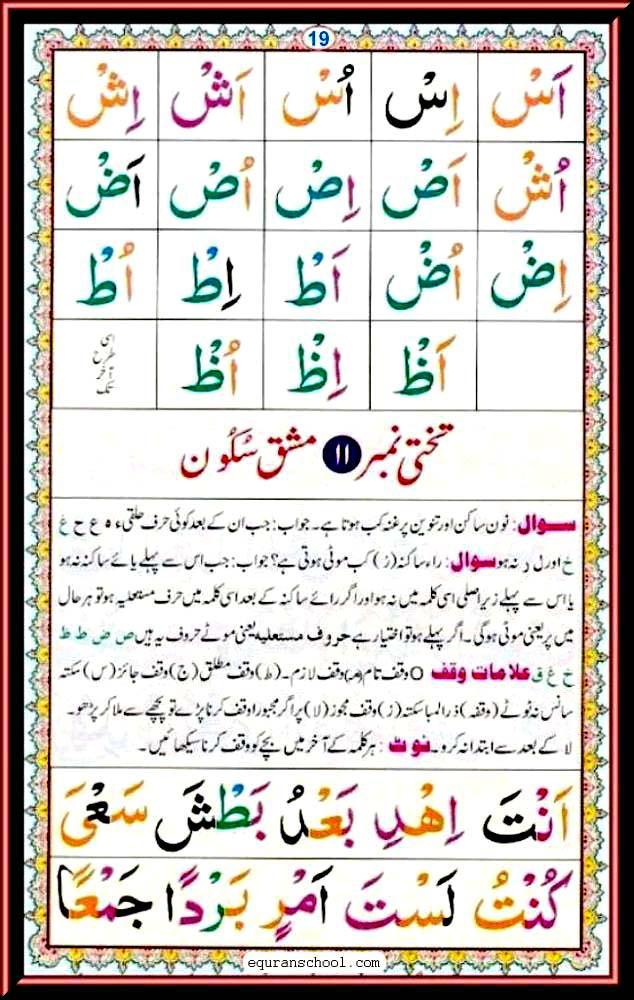 19
اَسْ اِسْ اُسْ اَشْ اِشْ
اُشْ اَصْ اِصْ اُصْ اَضْ
اِضْ اُضْ اَطْ اِطْ اُطْ
اَظْ اِظْ اُظْ اسی طرح آخر تک
تختی نمبر ۱۱ مشق سکون
سوال: نون ساکن اور تنوین پر غنہ کب ہوتا ہے۔ جواب: جب ان کے بعد کوئی حرف حلقی ء ہ ع ح غ
خ اور ل ر نہ ہو سوال: راء ساکنہ (ر) کب موٹی ہوتی ہے؟ جواب: جب اس سے پہلے یائے ساکنہ نہ ہو
یا اس سے پہلے زیر اصلی اسی کلمہ میں نہ ہو اور اگر رائے ساکنہ کے بعد اسی کلمہ میں حرف مستعلیہ ہو تو ہر حال
میں پر یعنی موٹی ہوگی۔ اگر پہلے ہو تو اختیار ہے حروف مستعلیہ یعنی موٹے حروف یہ ہیں ص ض ط ظ
خ غ ق علامات وقف O وقف تام (مـ) وقف لازم۔ (ط) وقف مطلق (ج) وقف جائز (س) سکتہ
سانس نہ ٹوٹے (وقفہ) ذرا لمبا سکتہ (ز) وقف مجوز (لا) پر اگر مجبورا وقف کرنا پڑے تو پیچھے سے ملا کر پڑھو۔
لا کے بعد سے ابتدا نہ کرو۔ نوٹ: ہر کلمہ کے آخر میں بچے کو وقف کرنا سیکھائیں۔
اَنْتَ اِهْدِ بَعْدُ بَطْشَ سَعْیَ
كُنْتُ لَسْتَ اَمْرٍ بَرْدًا جَمْعًا
equranschool.com